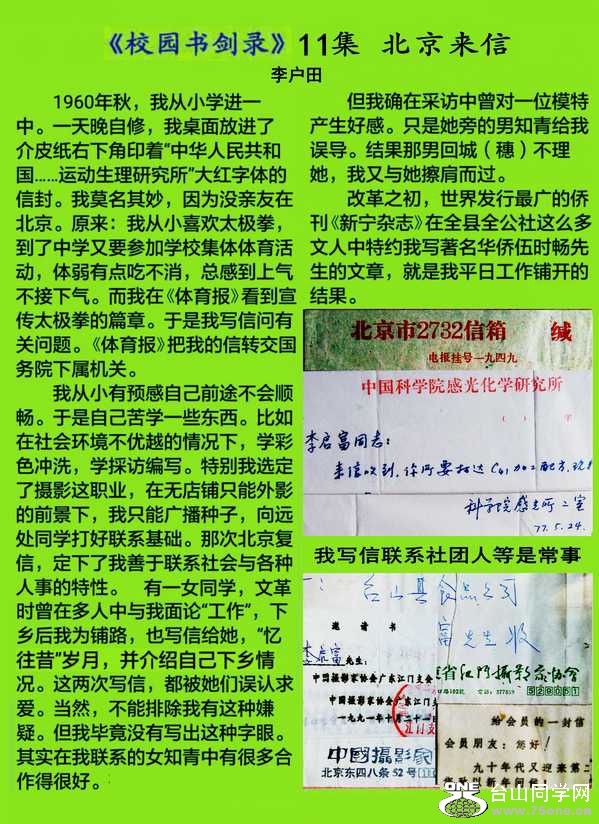 《校园书剑录》11集 北京来信
李户田
1960年秋，我从小学进一
中。一天晚自修，我桌面放进了
介皮纸右下角印着“中华人民共和
国……运动生理研究所”大红字体的
信封。我莫名其妙，因为没亲友在
北京。原来：我从小喜欢太极拳，
到了中学又要参加学校集体体育活
动，体弱有点吃不消，总感到上气
不接下气。而我在《体育报》看到宣
传太极拳的篇章。于是我写信问有
关问题。《体育报》把我的信转交国
务院下属机关。
我从小有预感自己前途不会顺
畅。于是自己苦学一些东西。比如
在社会环境不优越的情况下，学彩
色冲洗，学探访编写。特别我选定
了摄影这职业，在无店铺只能外影
的前景下，我只能广播种子，向远
处同学打好联系基础。那次北京复
信，定下了我善于联系社会与各种
人事的特性。 有一女同学，文革
时曾在多人中与我面论“工作”，下
乡后我为铺路，也写信给她，“忆
往昔”岁月，并介绍自己下乡情
况。这两次写信，都被她们误认求
爱。当然，不能排除我有这种嫌
疑。但我毕竟没有写出这种字眼。
其实在我联系的女知青中有很多合
作得很好。
但我确在采访中曾对一位模特
产生好感。只是她旁的男知青给我
误导。结果那男回城（穗）不理
她，我又与她擦肩而过。
改革之初，世界发行最广的侨
刊《新宁杂志》在全县全公社这么多
文人中特约我写著名华侨伍时畅先
生的文章，就是我平日工作铺开的
结果。
北京市2732信箱 缄
电报挂号一一九四九
中国科学院感光化学研究所
（ ） 字
李启富同志：
来信收到，你所要柯达C41加工配方，现
科学院感光所二室
77.5.24.
我写信联系社团人等是常事
台山县食品公司
富先生收
邀请书
先生：
中国摄影家协会广东江门支会
中国摄影家协会广东江门支
一九九一年十月二十
江门支
中國攝影家
北京东四八条52号
省江门攝影家协会
529051
给会员的一封信
会员朋友：您好！
九十年代又迎来第二
台山同学网
www.75one.cn